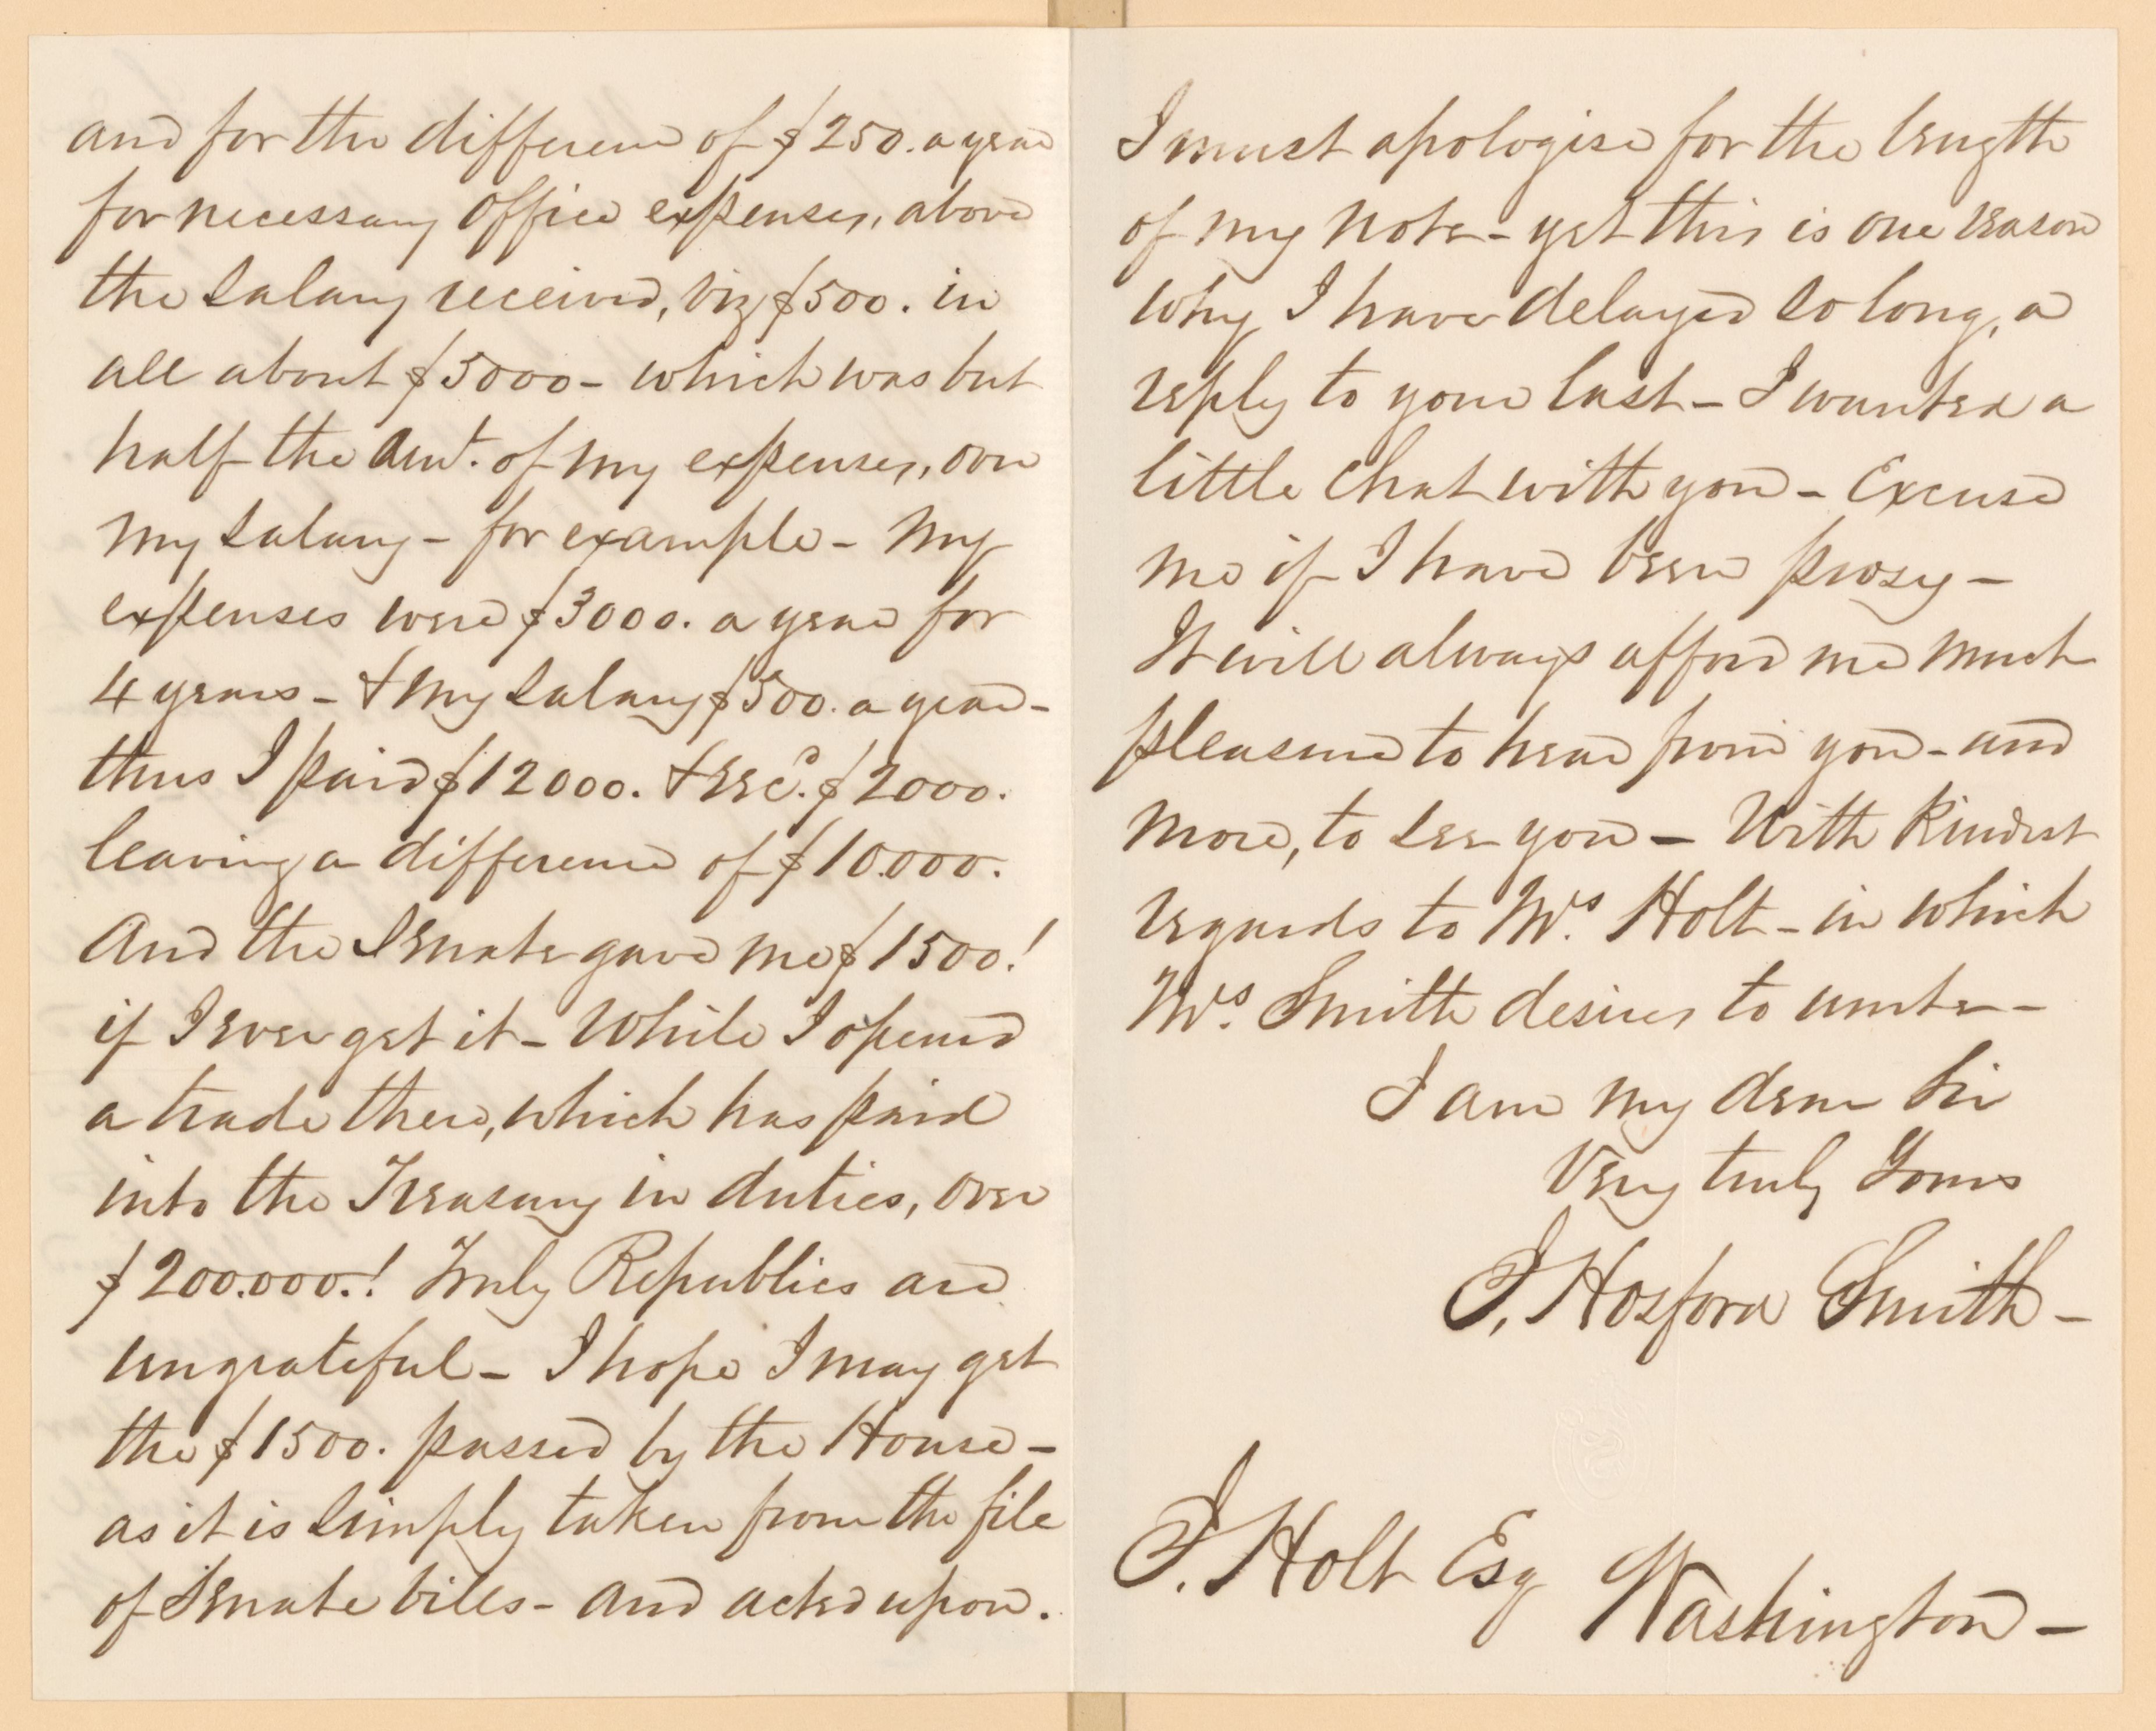 and for the difference of $250. a year
for necessary Office expenses, above
the Salary received, viz $500. in
all about $5000 - which was but
half the Amt. of my expenses, over
my Salary - for example - My
expenses were $3000. a year for
4 years - & my Salary $500. a year -
thus I paid $12000. & recd. $2000.
leaving a difference of $10.000.
And the Senate gave me $1500!
if I ever get it - While I opened
a trade there, which has paid
into the Treasury in duties, over
$200.000.! Truly Republics are
ungrateful - I hope I may get
the $1500. passed by the House -
as it is simply taken from the file
of Senate bills - and acted upon.
I must apologise for the length
of my note - yet this is one reason
why I have delayed so long, a
reply to your last - I wanted a
little chat with you - Excuse
me if I have been prosy -
It will always afford me much
pleasure to hear from you - and
more, to see you - With kindest
regards to Mrs. Holt - in which
Mrs. Smith desires to unite -
I am my dear Sir
Very truly Yours
J. Hosford Smith -
J. Holt Esq Washington -